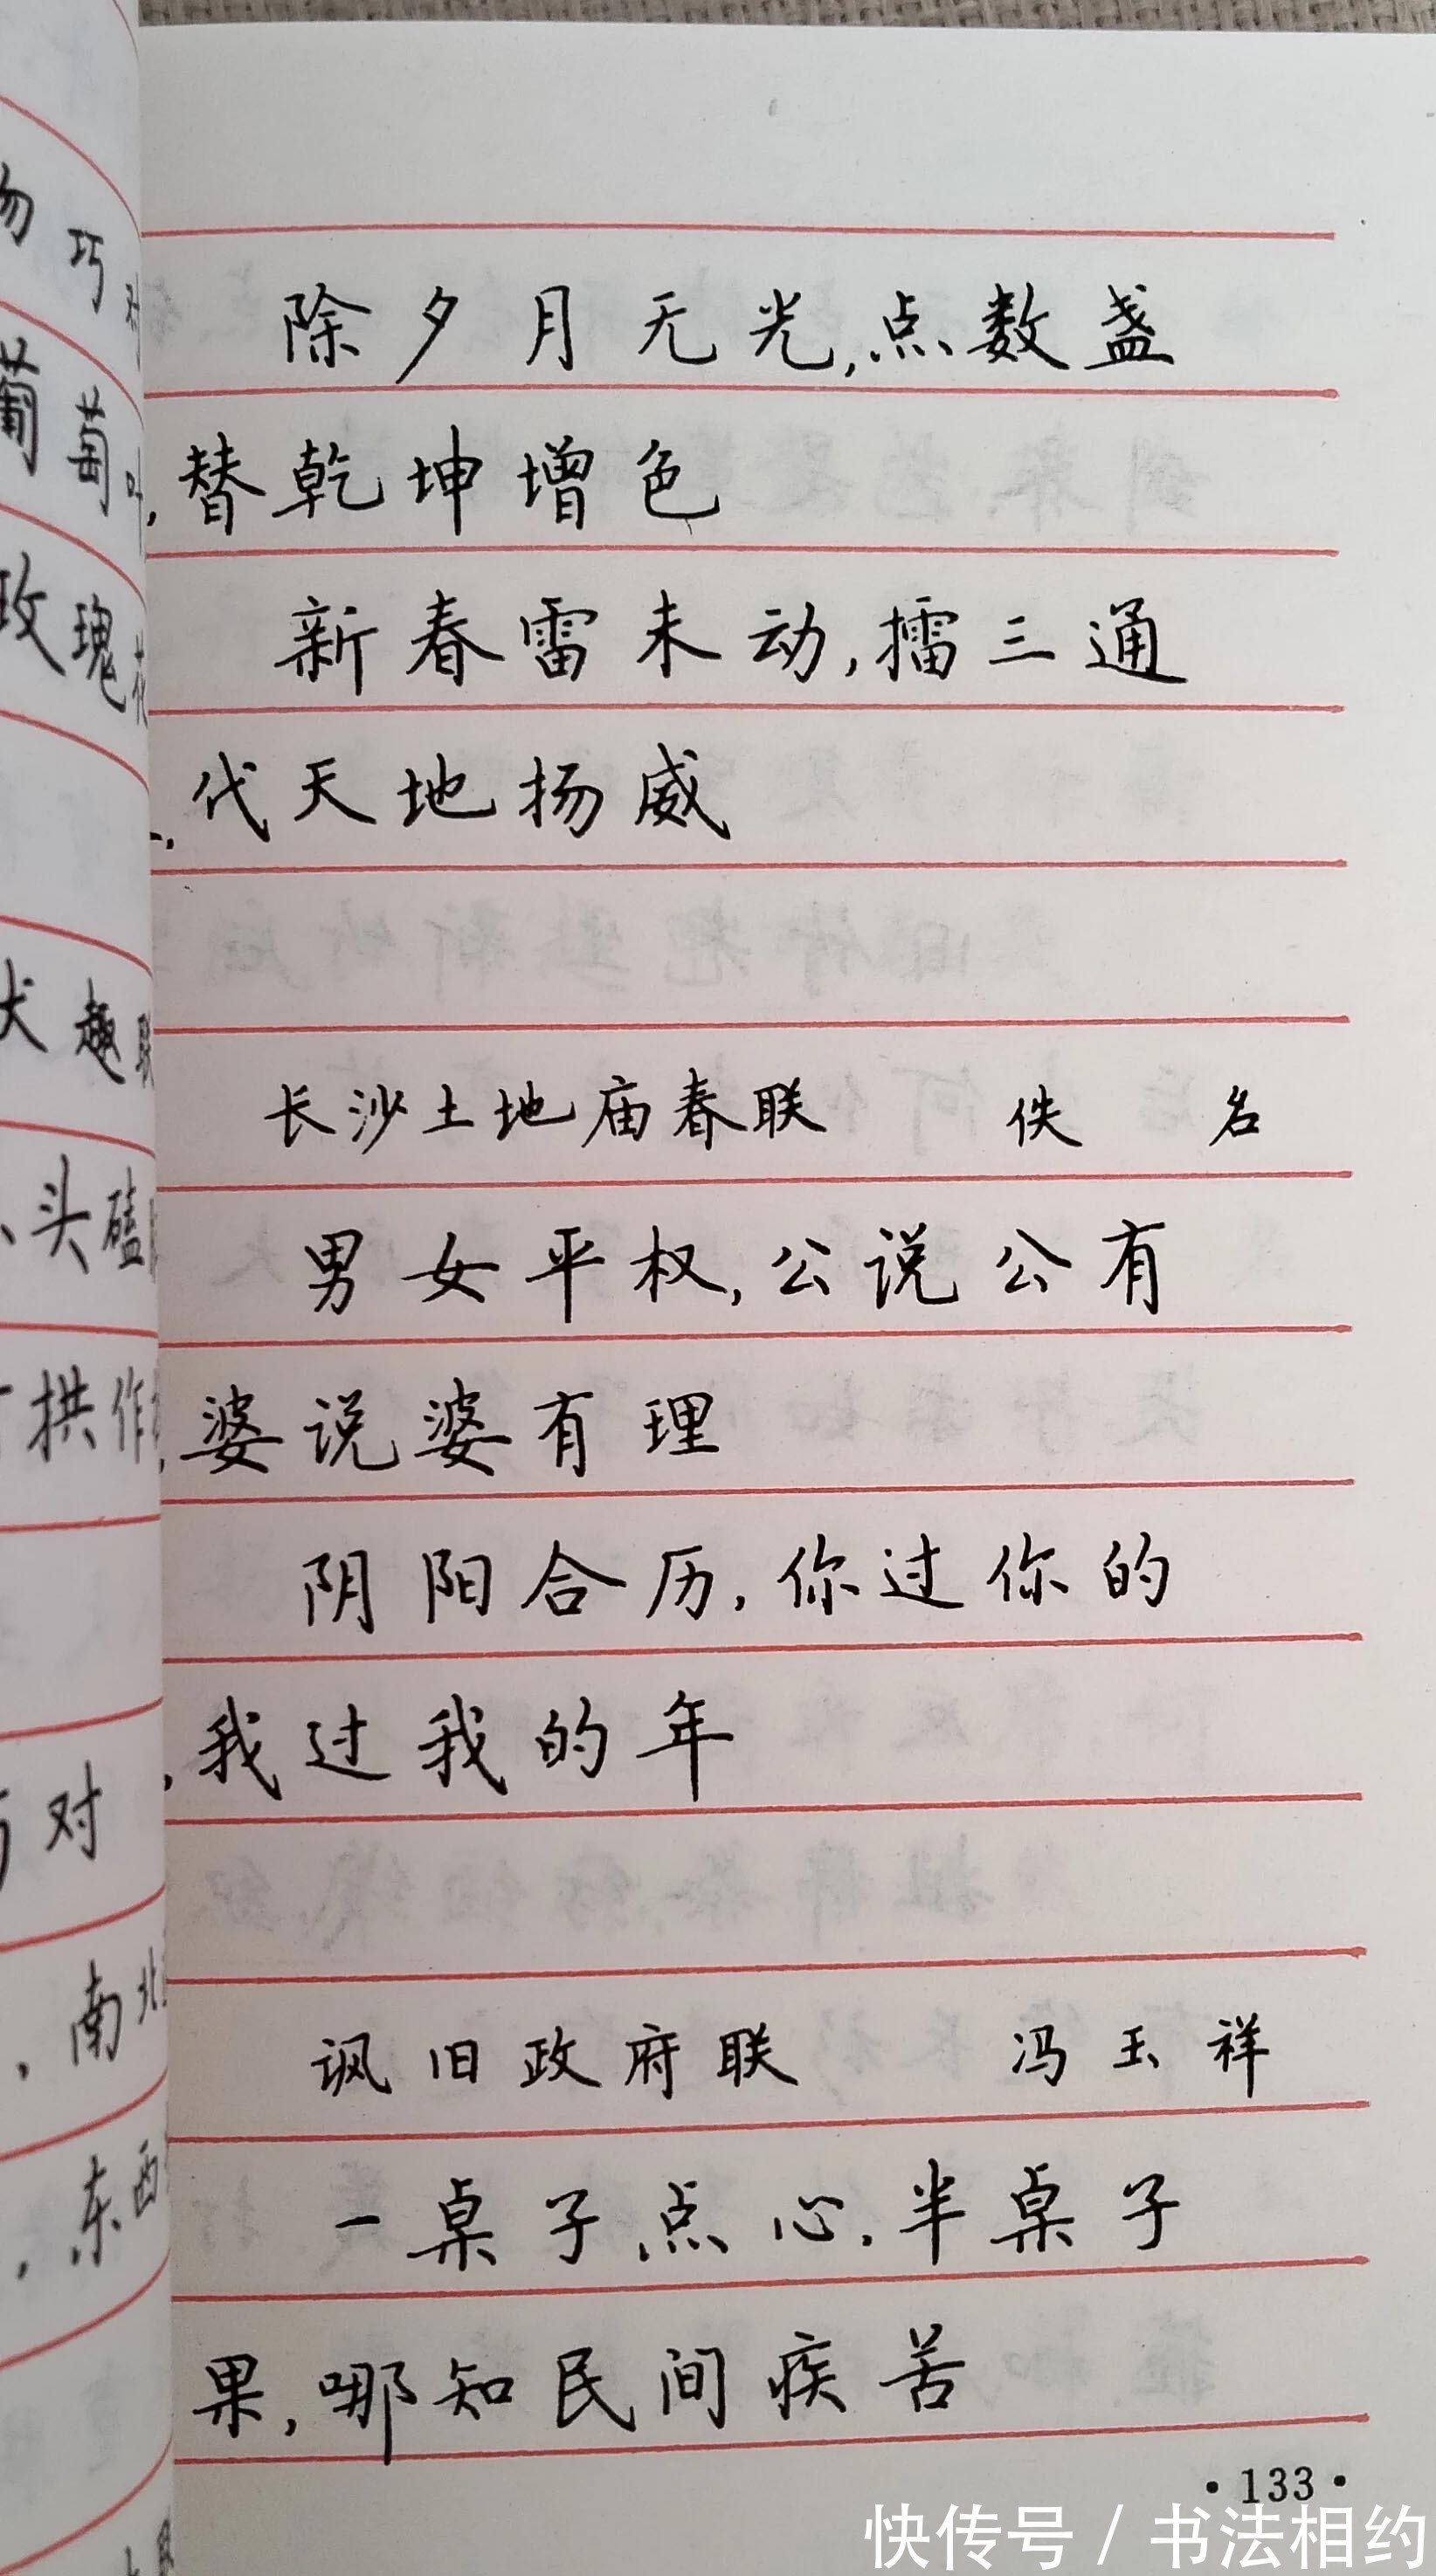 除夕月无光,点数盏
,替乾坤增色
新春雷未动,擂三通
,代天地扬威
长沙土地庙春联 佚名
男女平权,公说公有
,婆说婆有理
阴阳合历,你过你的
,我过我的年
讽旧政府联 冯玉祥
一桌子点心,半桌子
果,哪知民间疾苦
·133·
快传号/书法相约
巧
葡萄
玫瑰
犬趣联
头磕
拱作
对
,南北
,东西